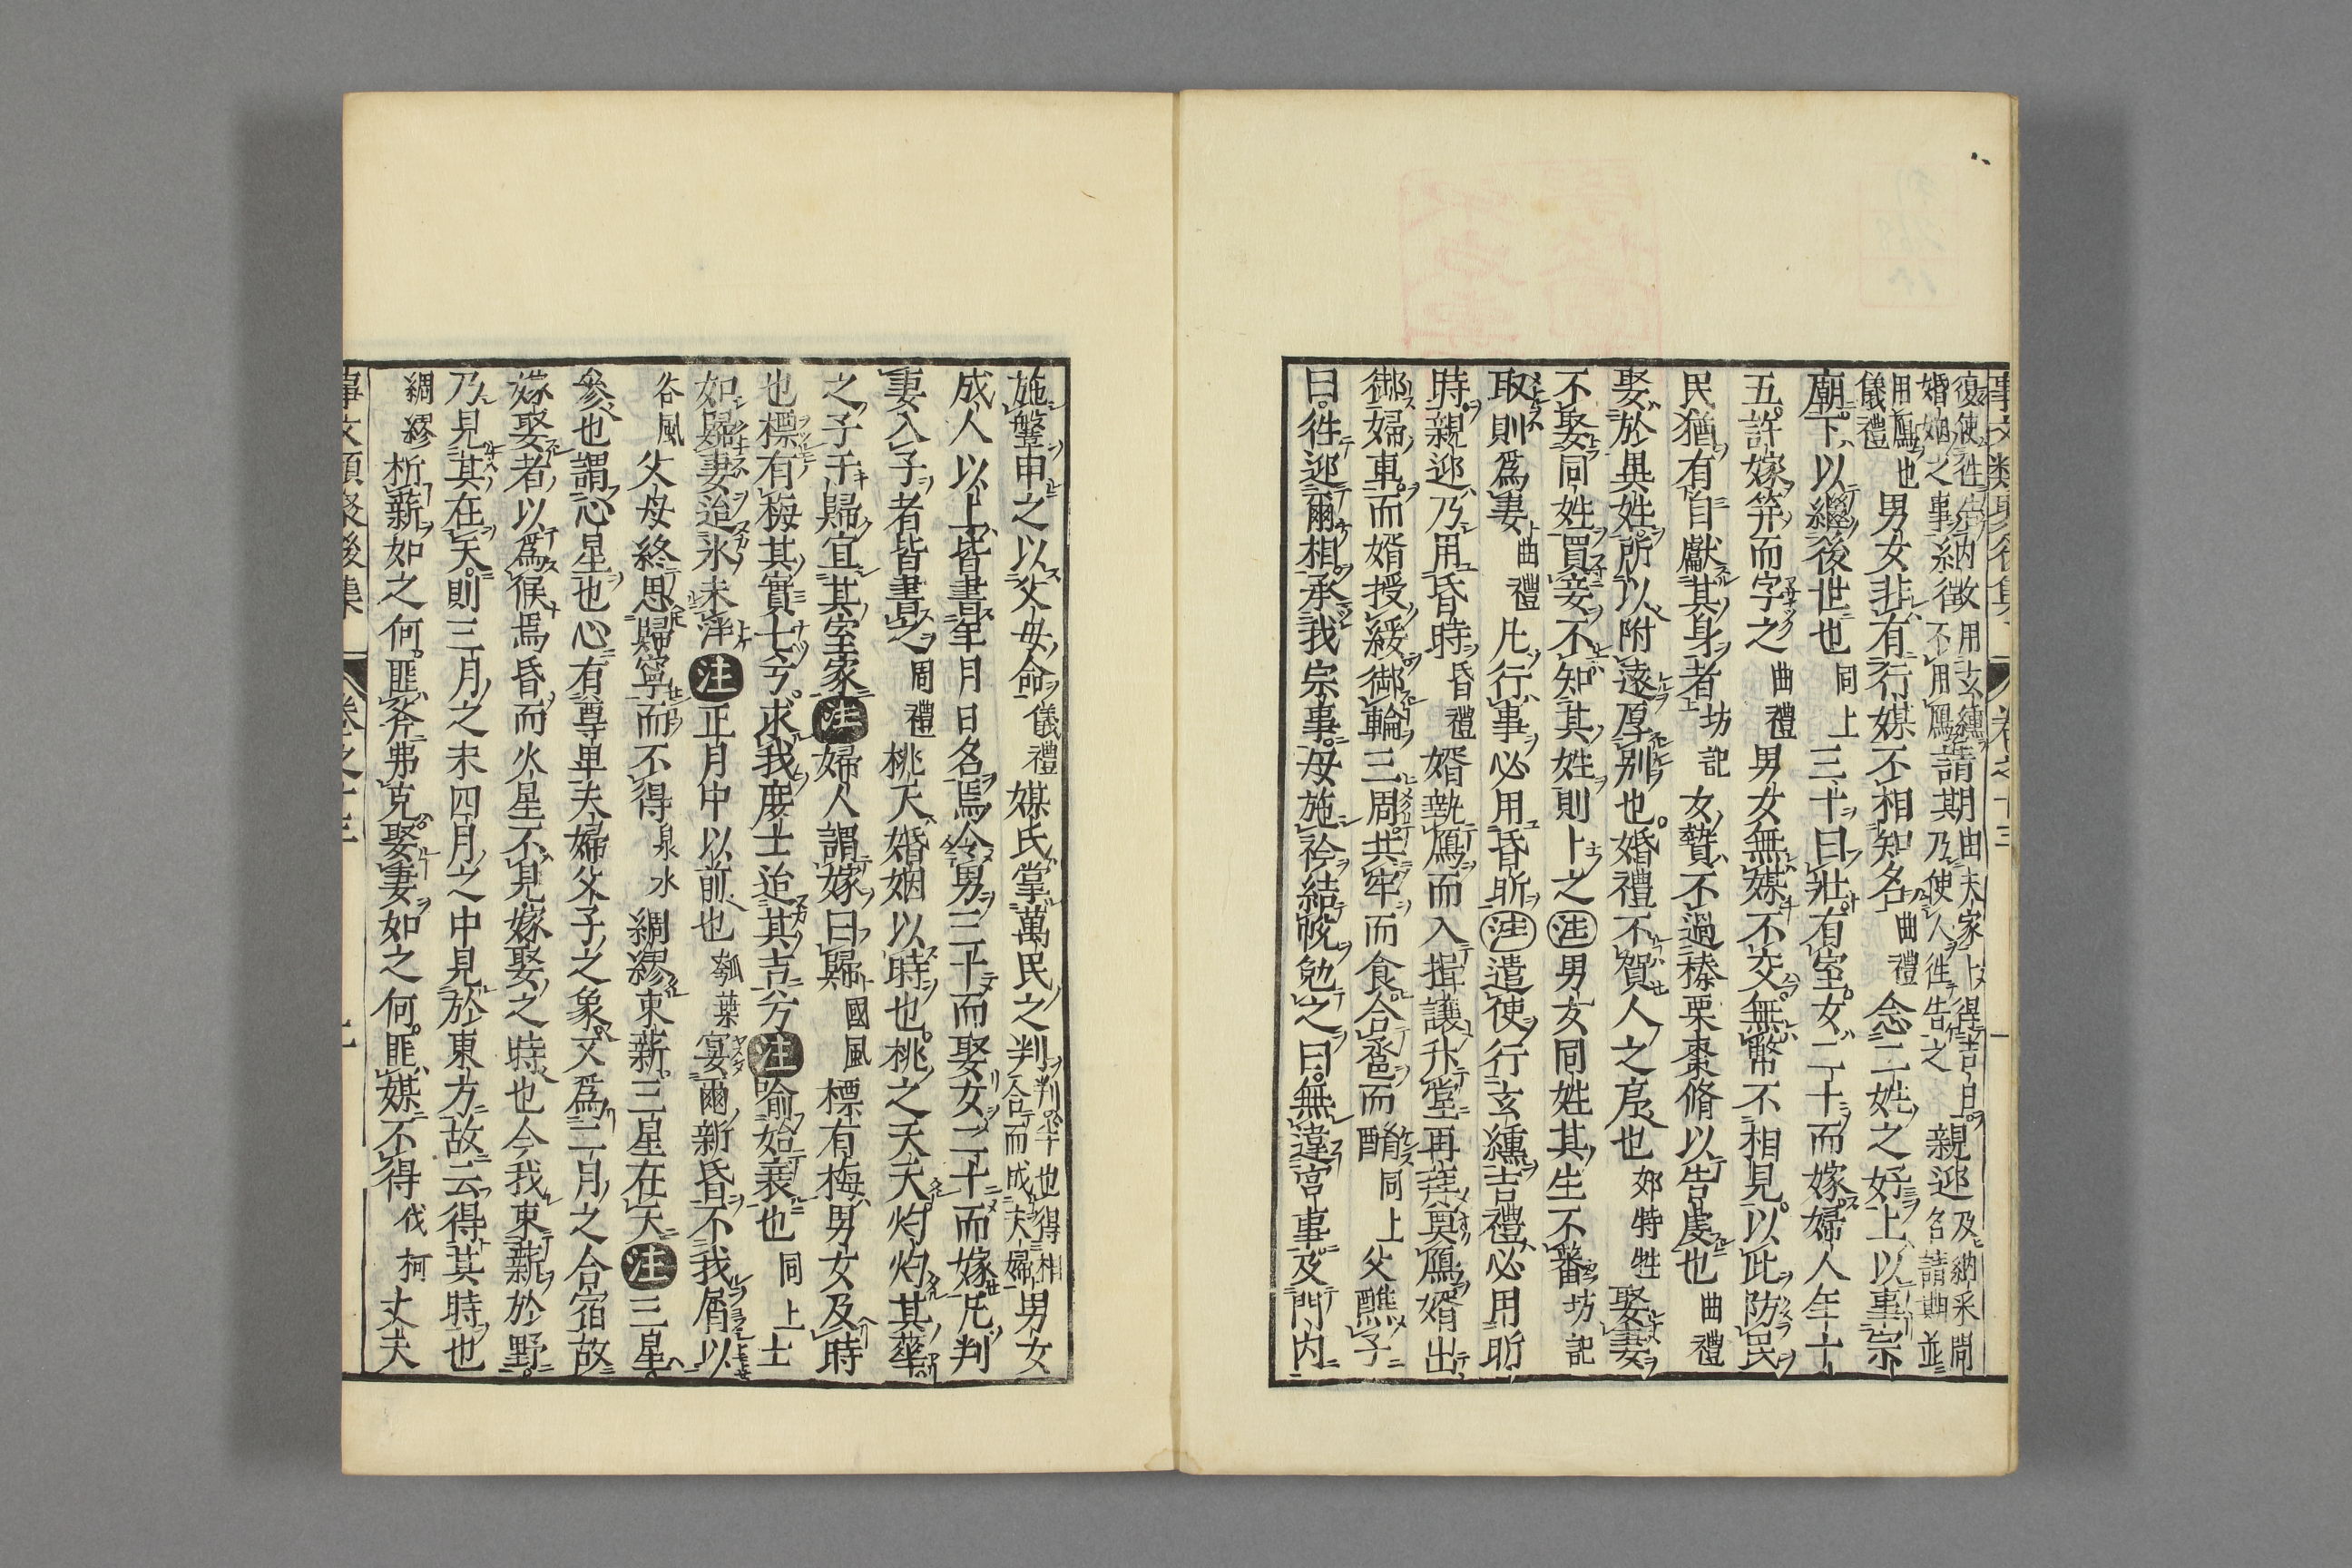 復使往告納故用玄纁請期由夫家卜得吉日親迎及納采問
婚姻之事納徵不用鴈乃使人往告之名請期並
用鴈也男女非有行媒不相知名曲禮合二姓之好上以事宗
儀禮
廟下以繼後世也同上三十曰壯有室女二十而嫁婦人年十
五許嫁笄而字之曲禮男女無媒不交無幣不相見以此防民
民猶有自獻其身者坊記女贄不過榛栗棗脩以告虔也曲禮
娶於異姓所以附遠厚別也婚禮不賀人之序也郊特牲娶妻
不娶同姓買妾不知其姓則卜之注男女同姓其生不蕃坊記
取則爲妻曲禮凡行事必用昏昕注遣使行玄纁吉禮必用昕
時親迎乃用昏時昏禮婿執鴈而入揖讓升堂再拜奠鴈婿出
御婦車而婿授綏御輪三周共牢而食合巹而酳同上父醮子
曰往迎爾相承我宗事母施衿結帨勉之曰無違宮事及門内
施鞶申之以父母命儀禮媒氏掌萬民之判判半也得相合而成夫婦男女
成人以上皆書年月日名焉令男三十而娶女二十而嫁凡判
妻入子者皆書之周禮桃夭婚姻以時也桃之夭夭灼灼其華
之子于歸宜其室家注婦人謂嫁曰歸國風標有梅男女及時
也標有梅其實七兮求我庶士迨其吉兮注喻始衰也同上士
如歸妻迨氷未泮注正月中以前也匏葉宴爾新昏不我屑以
谷風父母終思歸寧而不得泉水綢繆束薪三星在天注三星
參也謂心星也心有尊卑夫婦父子之象又爲二月之合宿故
嫁娶者以爲候焉昏而火星不見嫁娶之時也今我束薪於野
乃見其在天則三月之末四月之中見於東方故云得其時也
綢繆析薪如之何匪斧弗克娶妻如之何匪媒不得伐柯丈夫
事文類聚後集 卷之十三